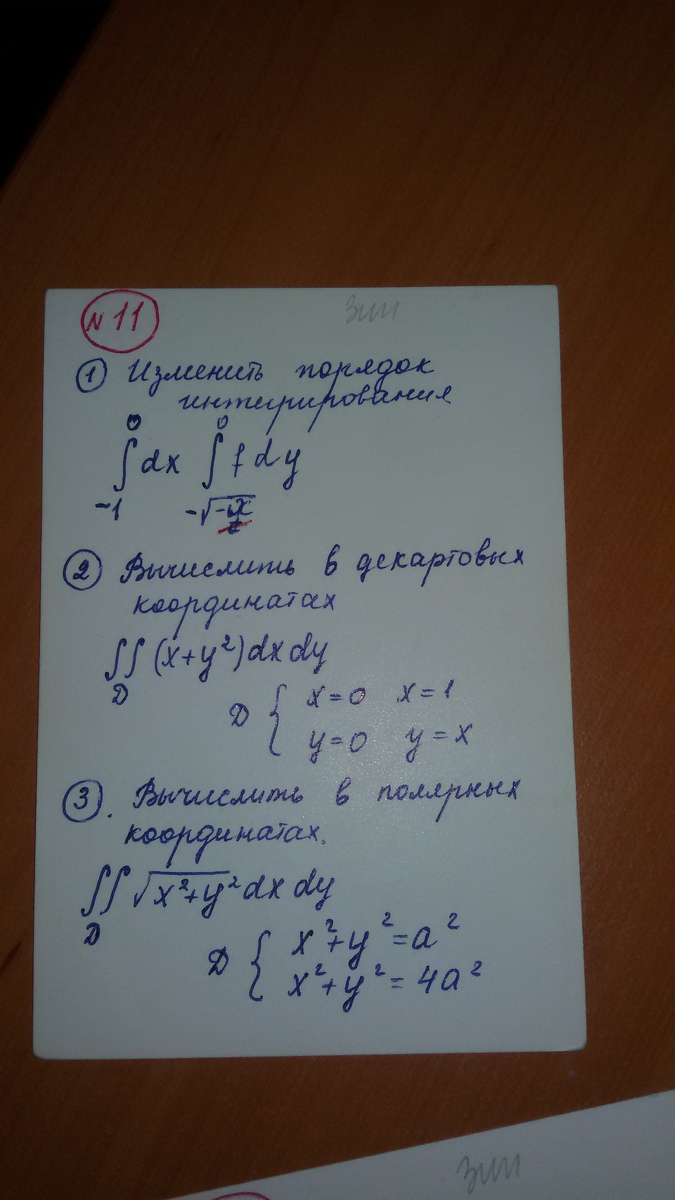 N 11 ЗИИ
① Изменить порядок
интегрирования
∫_{-1}^{0} dx ∫_{-√(-x)}^{0} f dy
② Вычислить в декартовых
координатах
∬_D (x+y²) dx dy
D { x=0 x=1
y=0 y=x
③. Вычислить в полярных
координатах.
∬_D √(x²+y²) dx dy
D { x²+y²=a²
x²+y²=4a²
ЗИИ